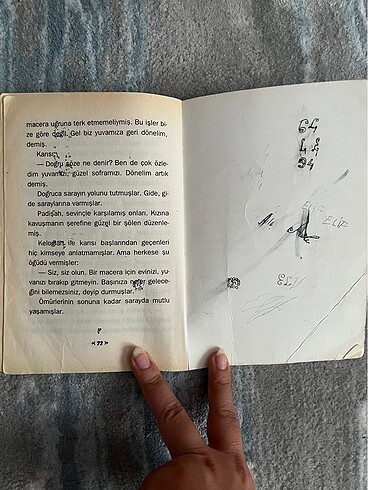 macera uğruna terk etmemeliymiş. Bu işler bi-
ze göre değil. Gel biz yuvamıza geri dönelim,
demiş.
Karısı:
— Doğru söze ne denir? Ben de çok özle-
dim yuvamızı, güzel soframızı. Dönelim artık
demiş.
Doğruca sarayın yolunu tutmuşlar. Gide, gi-
de saraylarına varmışlar.
Padişah, sevinçle karşılamış onları. Kızına
kavuşmanın şerefine güzel bir şölen düzenle-
miş.
Keloğlan ile karısı başlarından geçenleri
hiç kimseye anlatmamışlar. Ama herkese şu
öğüdü vermişler:
— Siz, siz olun. Bir macera için evinizi, yu-
vanızı bırakıp gitmeyin. Başınıza neler gelece-
ğini bilemezsiniz, deyip durmuşlar.
Ömürlerinin sonuna kadar sarayda mutlu
yaşamışlar.
72
64
44
94
ELİF
ELİF